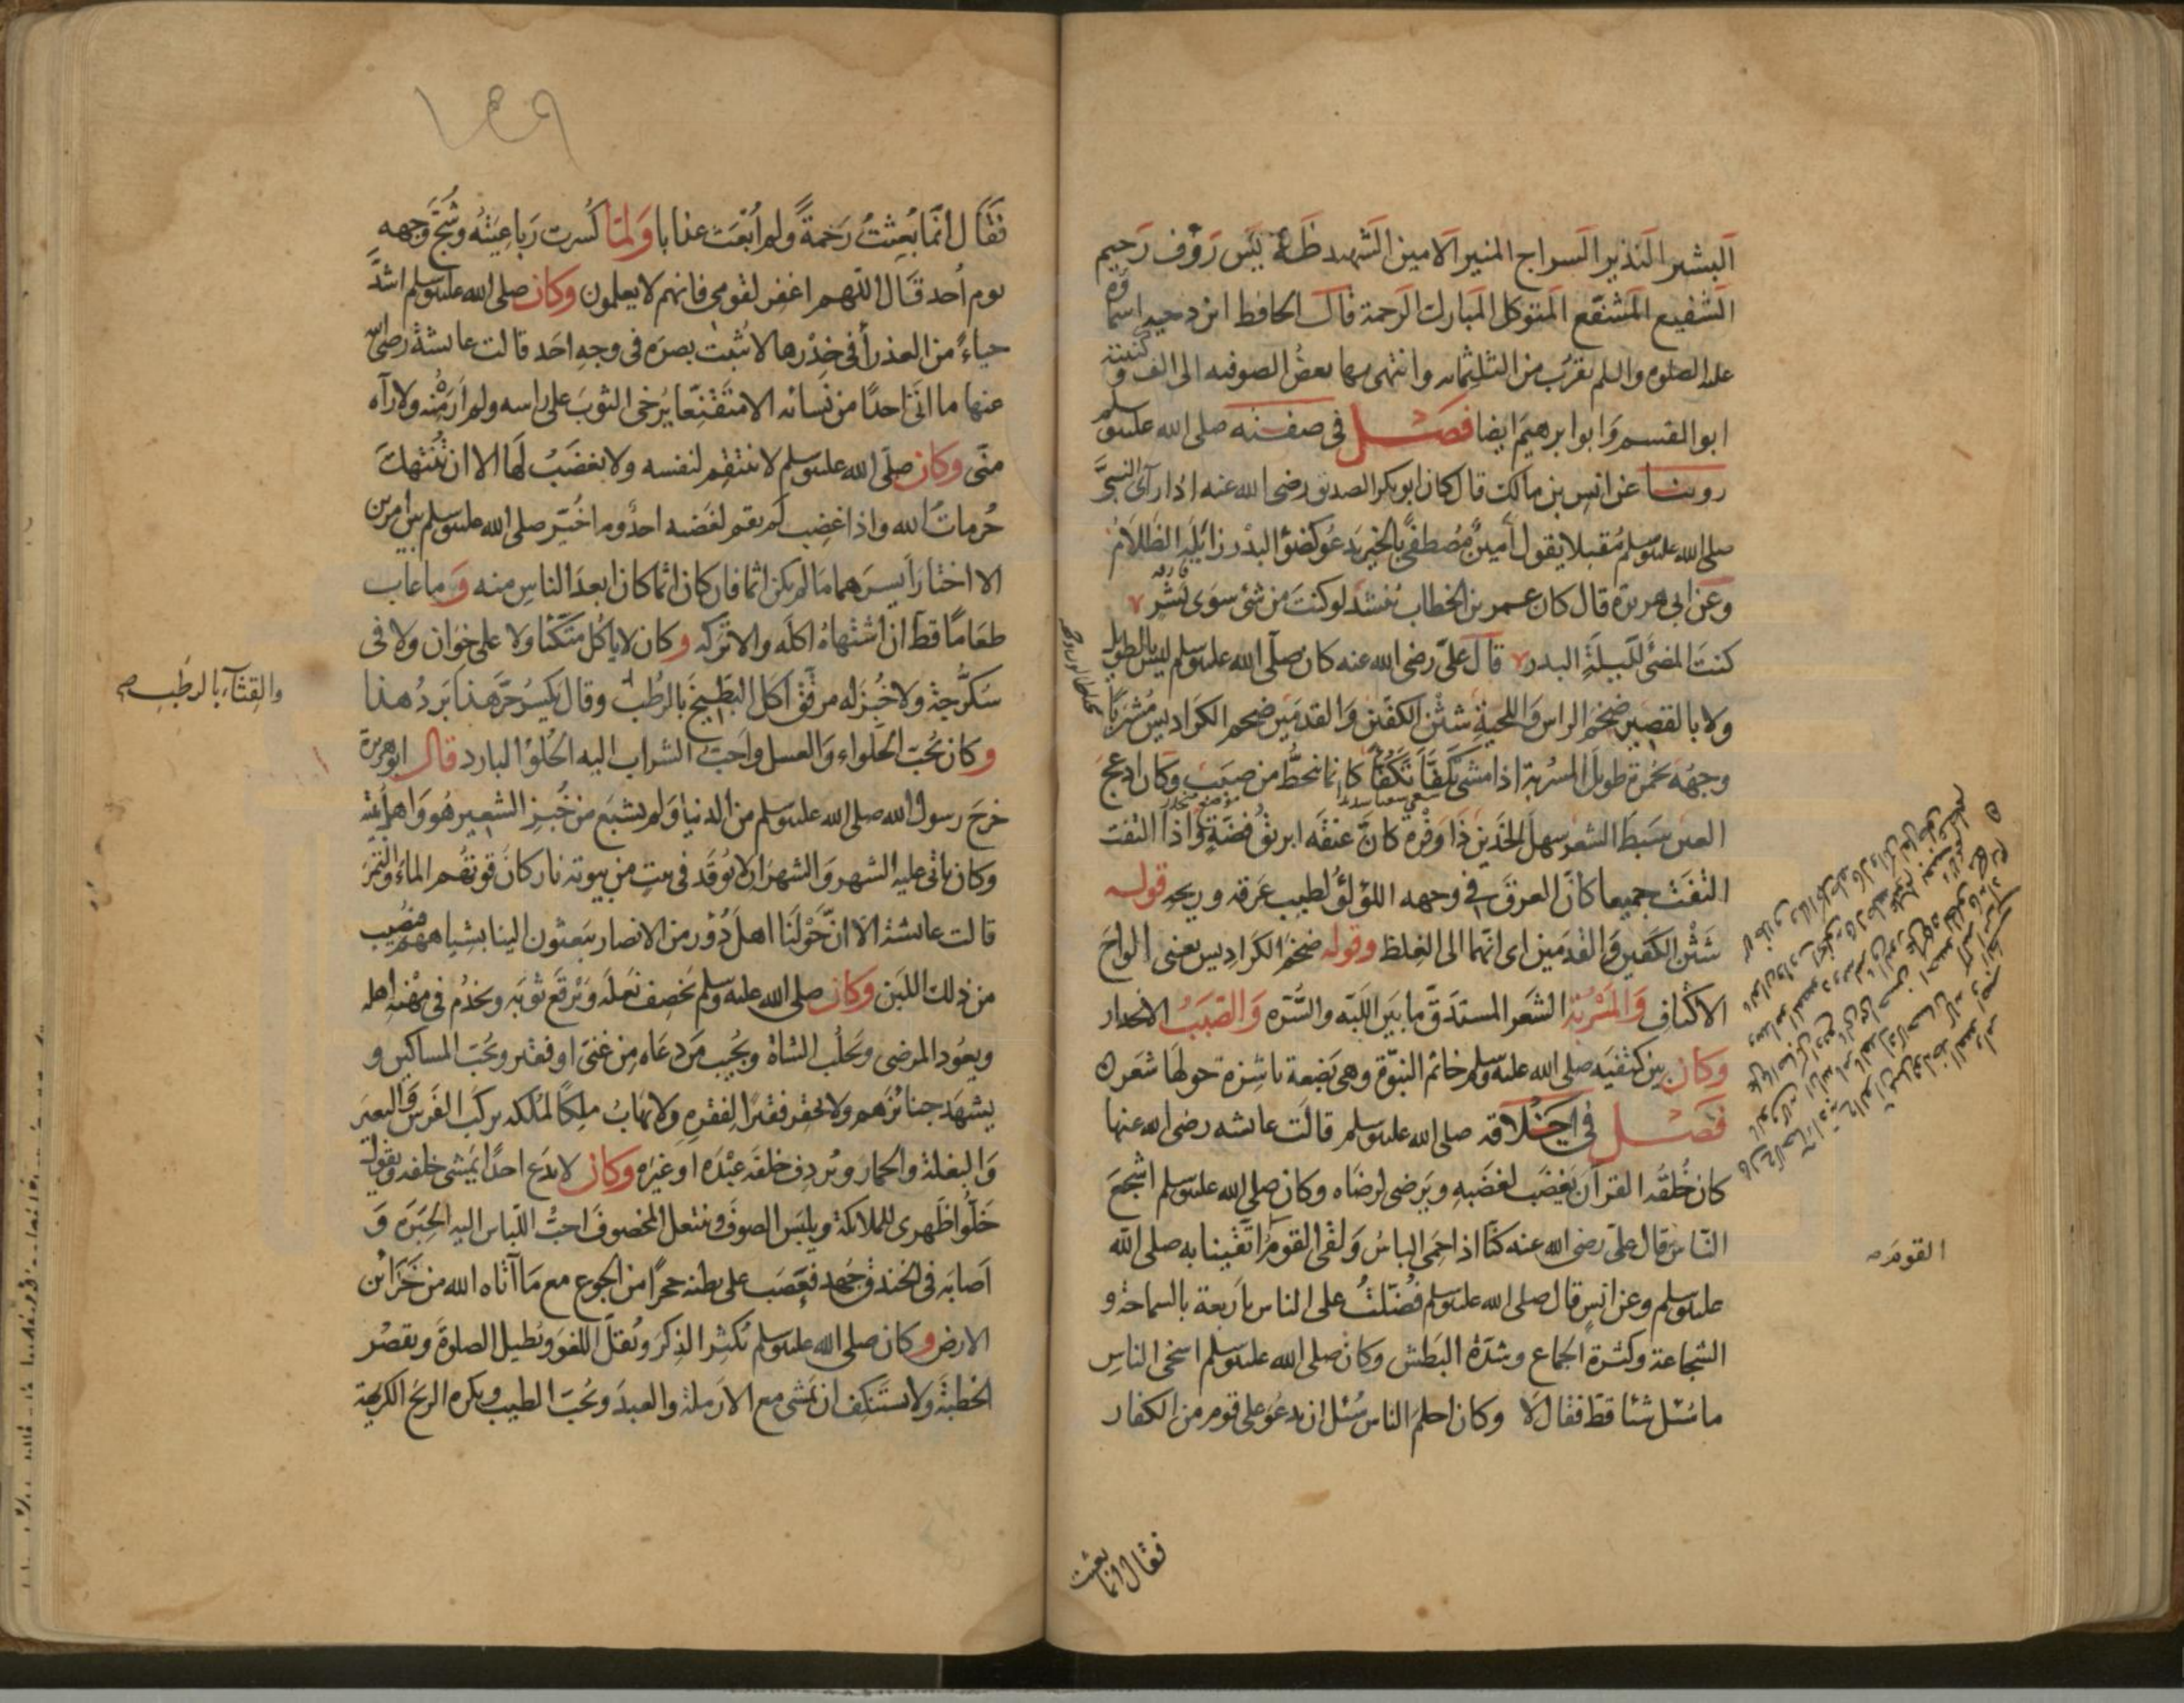 البشير النذير السراج المنير الامين الشهيد طه يس رؤف رحيم
الشفيع المشفع المتوكل المبارك الرحمة قال الحافظ ابن دحيه اسماؤه
عليه الصلوه والسلم تقرب من الثلثمائه وانتهى بها بعض الصوفيه الى الف وكنيته
ابو القسم وَابو ابرهيم ايضا فصل في صفته صلى الله عليه وسلم
روينا عن انس بن مالك قال كان ابو بكر الصديق رضى الله عنه اذا رآى النبيَّ
صلى الله عليه وسلم مُقبلا يقول أمينٌ مُصْطفىً بالخير يَدعُو كضوْ البدْر زايَلَه الظَّلَامُ
وعن ابى هريرة قال كان عمر بن الخطاب يُنشد لو كنتَ من شئ سوَى بَشَرٍ
كنتَ المضئَ لليلَةِ البدر قال علىّ رضى الله عنه كان صلّى الله عليه وسلم ليس بالطويل
ولا بالقصير ضخم الراس وَاللحيةِ شثن الكفّين وَالقدمَين ضخم الكراديس مُشْرَبًا
وجهُه حُمرة طويلَ المسْرُبة اذا مشى تكفّأ تكفُّأً كانما ينحطُّ من صبَب وكان ادعجَ
العين سَبطَ الشعر سهلَ الخدّين ذَا وَفْره كانَّ عنقَه ابريقُ فضّةٍ وَاذا التفت
التفَتَ جميعا كانَّ العرقَ في وجهه اللؤلؤُ لطيب عَرَقه وريحهِ قوله
شَثْن الكفين وَالقدمَين اى انهما الى الغِلَظ وقوله ضخمَ الكرادِيس يعنى الواحَ
الاكتافِ وَالمَسْرُبَة الشعَر المستدَقّ ما بَين اللَّبّه والسُّرّه وَالصّبَبُ الانحدار
وكان بين كتفَيه صلى الله عليه وسلم خاتم النبوّة وهى بَضعة ناشِزة حولهَا شعَرات
فصل في اخلاقه صلى الله عليه وسلم قالت عايشه رضى الله عنها
كان خُلقُه القرآن يَغضَب لغضَبهِ ويَرضى لرضَاه وكان صلى الله عليه وسلم اشجعَ
النّاس قال علىّ رضى الله عنه كنّا اذا حَمِىَ الباسُ وَلقى القومُ اتّقينا به صلى الله
عليه وسلم وعن انسٍ قال صلى الله عليه وسلم فُضّلتُ على الناس باَربعة بالسماحة و
الشجاعة وكثرة الجماع وشدّة البَطش وكان صلى الله عليه وسلم اسخى الناسِ
ما سُئل شئا قطّ فقال لا وكان احلمَ الناس سُئل ان يدعُوَ على قوم من الكفار
القومَ صح
فقال انما بعثت
فقَال انّما بُعِثتُ رَحمةً ولم اُبْعَث عذابا وَلما كُسرت رَباعِيَتُه وشُجَّ وَجهه
يوم اُحد قَال اللّهم اغفر لقومى فانهم لا يعلمون وكان صلى الله عليه وسلم اشدَّ
حياءً من العذرآ فى خِدْرها لا يُثبت بصرَه فى وجهِ احَد قالت عايشة رضى الله
عنها ما اتَى احدًا من نسائه الا متقَنِّعا يُرخى الثوبَ على راسه ولم اَرَ منْه ولا رآه
منّى وكان صلّى الله عليه وسلم لا ينتقم لنفسه ولا يغضَبُ لهَا الا ان تُنتهك
حُرماتُ الله واذا غضِب لم يقم لغَضبه احدٌ وما خُيّر صلى الله عليه وسلم بين امرين
الا اختار اَيسرَهما مَا لم يكن اثما فان كان اثما كان ابعدَ الناسِ منه وَما عاب
طعَاماً قطّ ان اشتهاهُ اكلَه والا ترَكه وكان لا ياكُل متّكئا ولا على خوَان ولا فى
سُكرّجة ولا خُبِزَ له مرقّق اكل البطّيخَ بالرُطب وقال يكسِرُ حرَّ هذا بَردُ هذا
والقثآء بالرطَب صح
وكان يُحبّ الحَلواء وَالعسل وَاحبُّ الشراب اليه الحُلوُ البارد قال ابو هريرة
خرجَ رسول الله صلى الله عليه وسلم من الدنيا وَلم يشبَع من خُبزِ الشعِير هُو وَاهلُ بَيته
وكان ياتى عليهِ الشهر وَالشهرَان لا يُوقَد في بيتٍ من بيوته نار كانَ قوتهُم الماءُ والتَّمرَ
قالت عائشة الّا انّ حَوْلَنا اهلَ دُوْرٍ من الانصار يبَعثون الينا بشِياههم فنصِيب
من ذلك اللبَن وكان صلى الله عليه وسلم يَخصِف نَعلَه وَيرْقَع ثوبَه ويخدُم فى مِهْنة اهله
ويعُود المرضى ويَحلُب الشاة ويُجيب مَن دعَاه مِن غنىّ او فقير ويُحبّ المساكين و
يشهَد جنائزهم ولا يحقِر فقيْرًا لِفقره ولا يهابُ ملِكاً لمُلكه يركَب الفرَسَ وَالبعيرَ
وَالبغلة والحمار ويُردِف خلفَه عبْدَه او غيرَه وكان لا يدَع احدًا يَمشى خلفه ويقول
خلّوا ظَهرى للملائكة ويلبَس الصوفَ وينتعل المخصوفَ احبُّ اللّباس اليه الحِبَرَه وَ
اَصابَه في الخندق جُهد فعَصَب على بطنه حجرًا من الجوع مع مَا آتاه الله من خزَائن
الارض وكان صلى الله عليه وسلم يُكثِر الذِكرَ ويُقلّ اللغوَ ويُطيل الصلوةَ ويقصُر
الخطبةَ ولا يستَنكف ان يَمشى مع الارَملة والعبد ويُحبّ الطيب ويكره الريحَ الكريهة